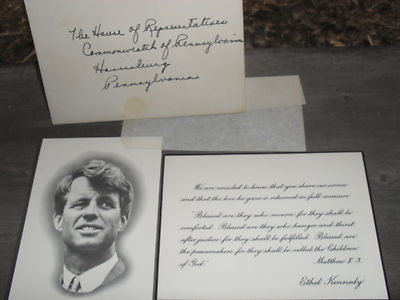 The House of Representatives
Commonwealth of Pennsylvania
Harrisburg
Pennsylvania
We are consoled to know that you share our sorrow
and that the love he gave is returned in full measure
"Blessed are they who mourn for they shall be
comforted. Blessed are they who hunger and thirst
after justice for they shall be fulfilled. Blessed are
the peacemakers for they shall be called the Children
of God"
Matthew V. 3.
Ethel Kennedy